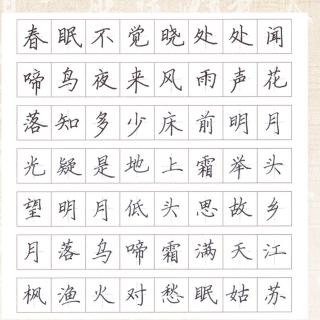 春眠不觉晓处处闻
啼鸟夜来风雨声花
落知多少床前明月
光疑是地上霜举头
望明月低头思故乡
月落乌啼霜满天江
枫渔火对愁眠姑苏